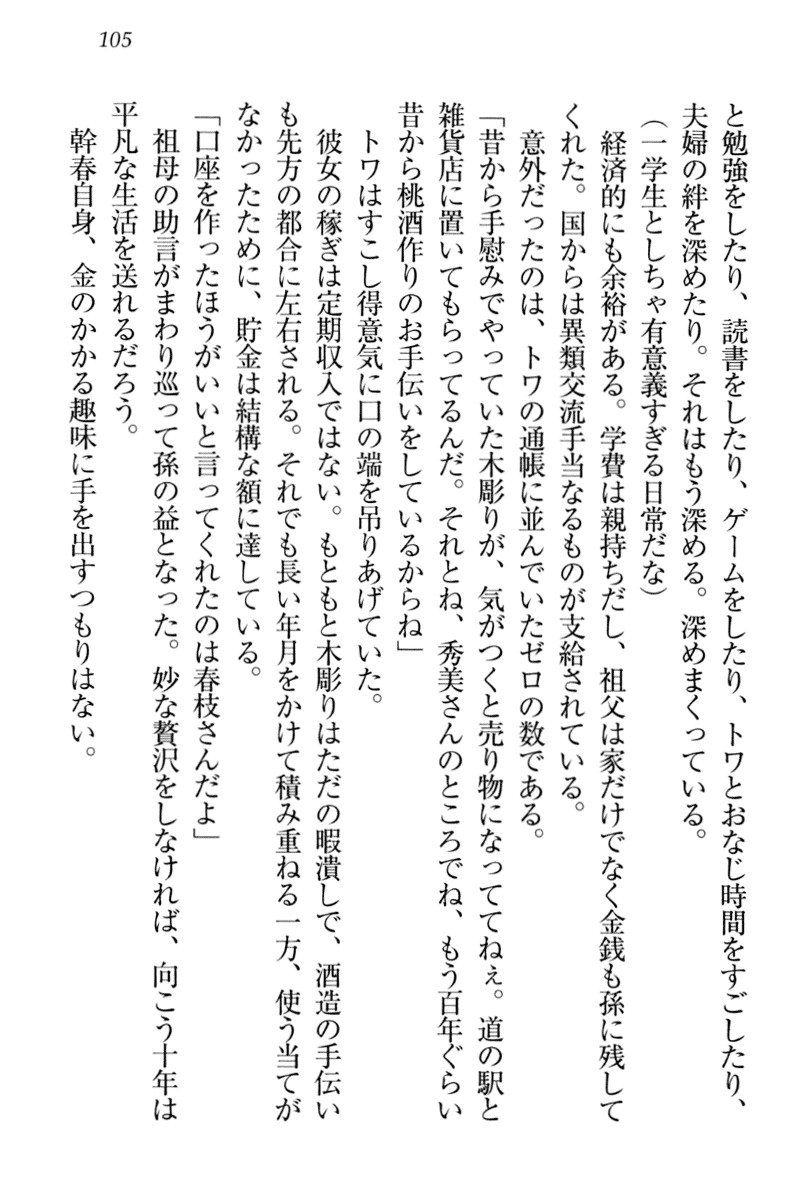 105
と勉強をしたり、読書をしたり、ゲームをしたり、トワとおなじ時間をすごしたり、
夫婦の絆を深めたり。それはもう深める。深めまくっている。
（一学生としちゃ有意義すぎる日常だな）
経済的にも余裕がある。学費は親持ちだし、祖父は家だけでなく金銭も孫に残して
くれた。国からは異類交流手当なるものが支給されている。
意外だったのは、トワの通帳に並んでいたゼロの数である。
「昔から手慰みでやっていた木彫りが、気がつくと売り物になっててねぇ。道の駅と
雑貨店に置いてもらってるんだ。それとね、秀美さんのところでね、もう百年ぐらい
昔から桃酒作りのお手伝いをしているからね」
トワはすこし得意気に口の端を吊りあげていた。
彼女の稼ぎは定期収入ではない。もともと木彫りはただの暇潰しで、酒造の手伝い
も先方の都合に左右される。それでも長い年月をかけて積み重ねる一方、使う当てが
なかったために、貯金は結構な額に達している。
「口座を作ったほうがいいと言ってくれたのは春枝さんだよ」
祖母の助言がまわり巡って孫の益となった。妙な贅沢をしなければ、向こう十年は
平凡な生活を送れるだろう。
幹春自身、金のかかる趣味に手を出すつもりはない。